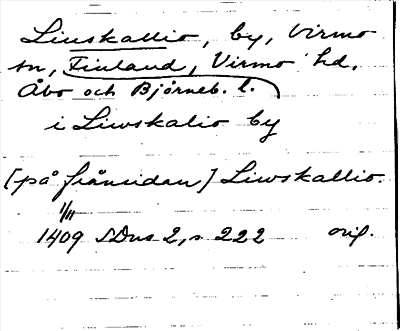 Liuskallio, by, Virmo
sn, Finland, Virmo hd.
Åbo och Björneb. l.
i Liwskalio by
[på frånsidan] Liwskallio.
1/11
1409 SDns 2, s 222 orig.